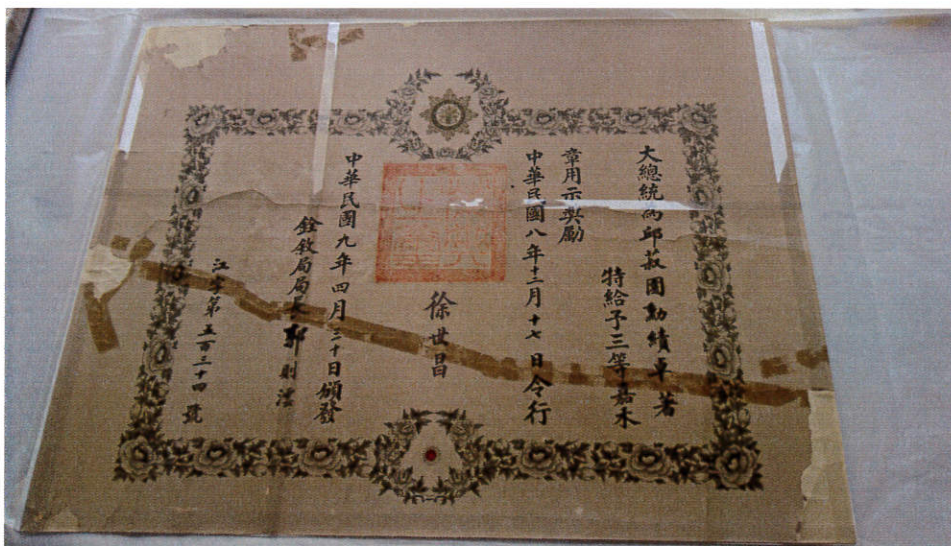 大總統為邱菽園勳績卓著
特給予三等嘉禾
章用示奬勵
中華民國八年十二月十七日令行
徐世昌
中華民國九年四月三十日頒發
銓敘局局長郭則澐
江字第五百三十四號